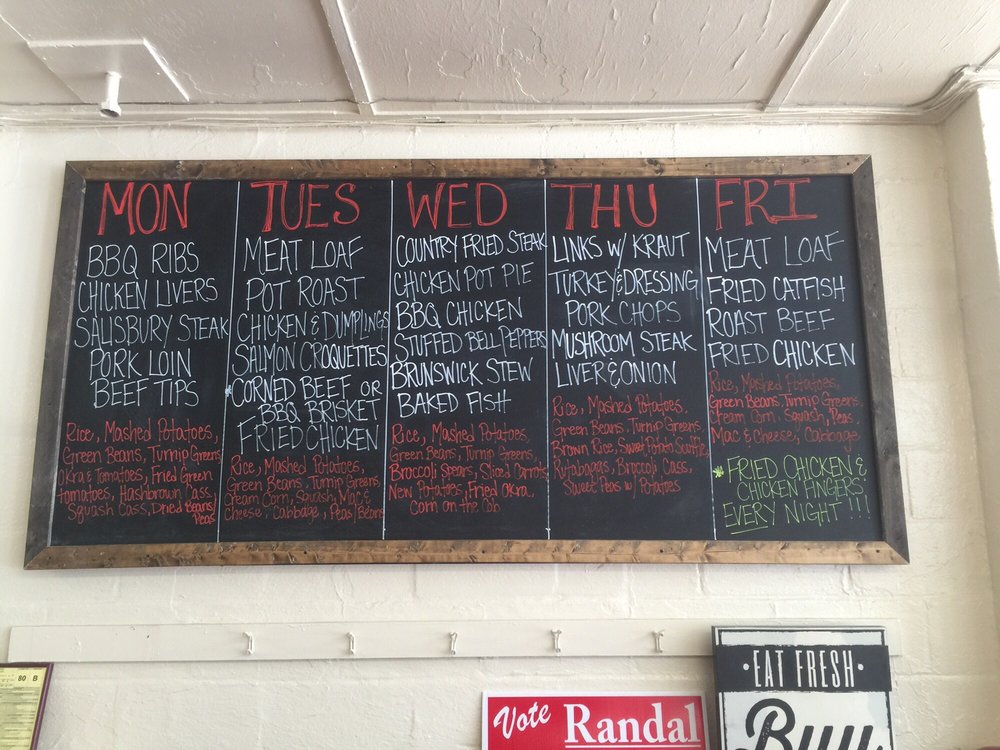 MON
BBQ RIBS
CHICKEN LIVERS
SALISBURY STEAK
PORK LOIN
BEEF TIPS
Rice, Mashed Potatoes,
Green Beans, Turnip Greens
Okra & Tomatoes, Fried Green
Tomatoes, Hashbrown Cass,
Squash Cass, Dried Beans/
Peas
TUES
MEAT LOAF
POT ROAST
CHICKEN & DUMPLINGS
SALMON CROQUETTES
*CORNED BEEF OR
BBQ BRISKET
FRIED CHICKEN
Rice, Mashed Potatoes,
Green Beans, Turnip Greens,
Cream Corn, Squash, Mac &
Cheese, Cabbage, Peas/Beans
WED
COUNTRY FRIED STEAK
CHICKEN POT PIE
BBQ CHICKEN
STUFFED BELL PEPPERS
BRUNSWICK STEW
BAKED FISH
Rice, Mashed Potatoes,
Green Beans, Turnip Greens,
Broccoli Spears, Sliced Carrots,
New Potatoes, Fried Okra,
Corn on the Cob
THU
LINKS W/ KRAUT
TURKEY & DRESSING
PORK CHOPS
MUSHROOM STEAK
LIVER & ONION
Rice, Mashed Potatoes,
Green Beans, Turnip Greens,
Brown Rice, Sweet Potato Souffle,
Rutabagas, Broccoli Cass,
Sweet Peas w/ Potatoes
FRI
MEAT LOAF
FRIED CATFISH
ROAST BEEF
FRIED CHICKEN
Rice, Mashed Potatoes,
Green Beans, Turnip Greens,
Cream Corn, Squash, Peas,
Mac & Cheese, Cabbage
*FRIED CHICKEN &
CHICKEN FINGERS
EVERY NIGHT!!!
80 B
Vote Randal
·EAT FRESH·
Buy